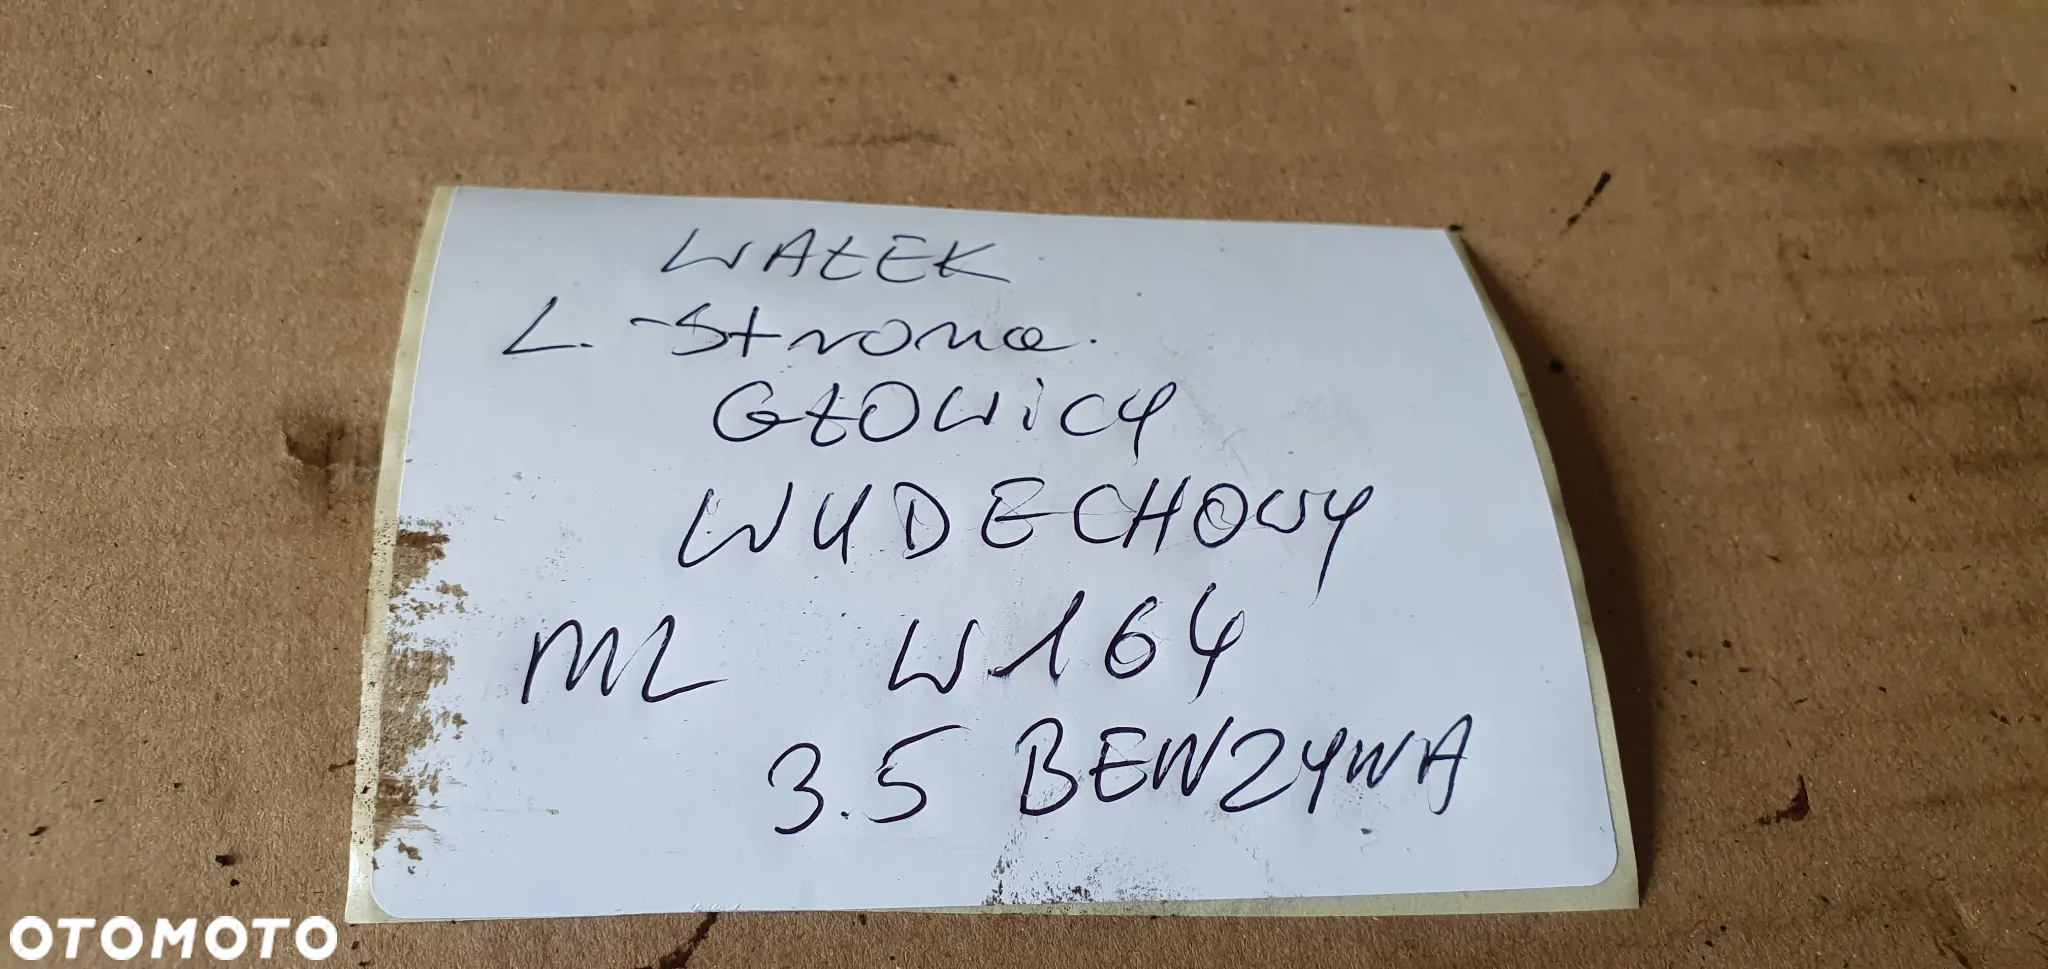 WAŁEK
L. -Strona.
GŁOWICY
WYDECHOWY
ML W164
3.5 BENZYWA
OTOMOTO